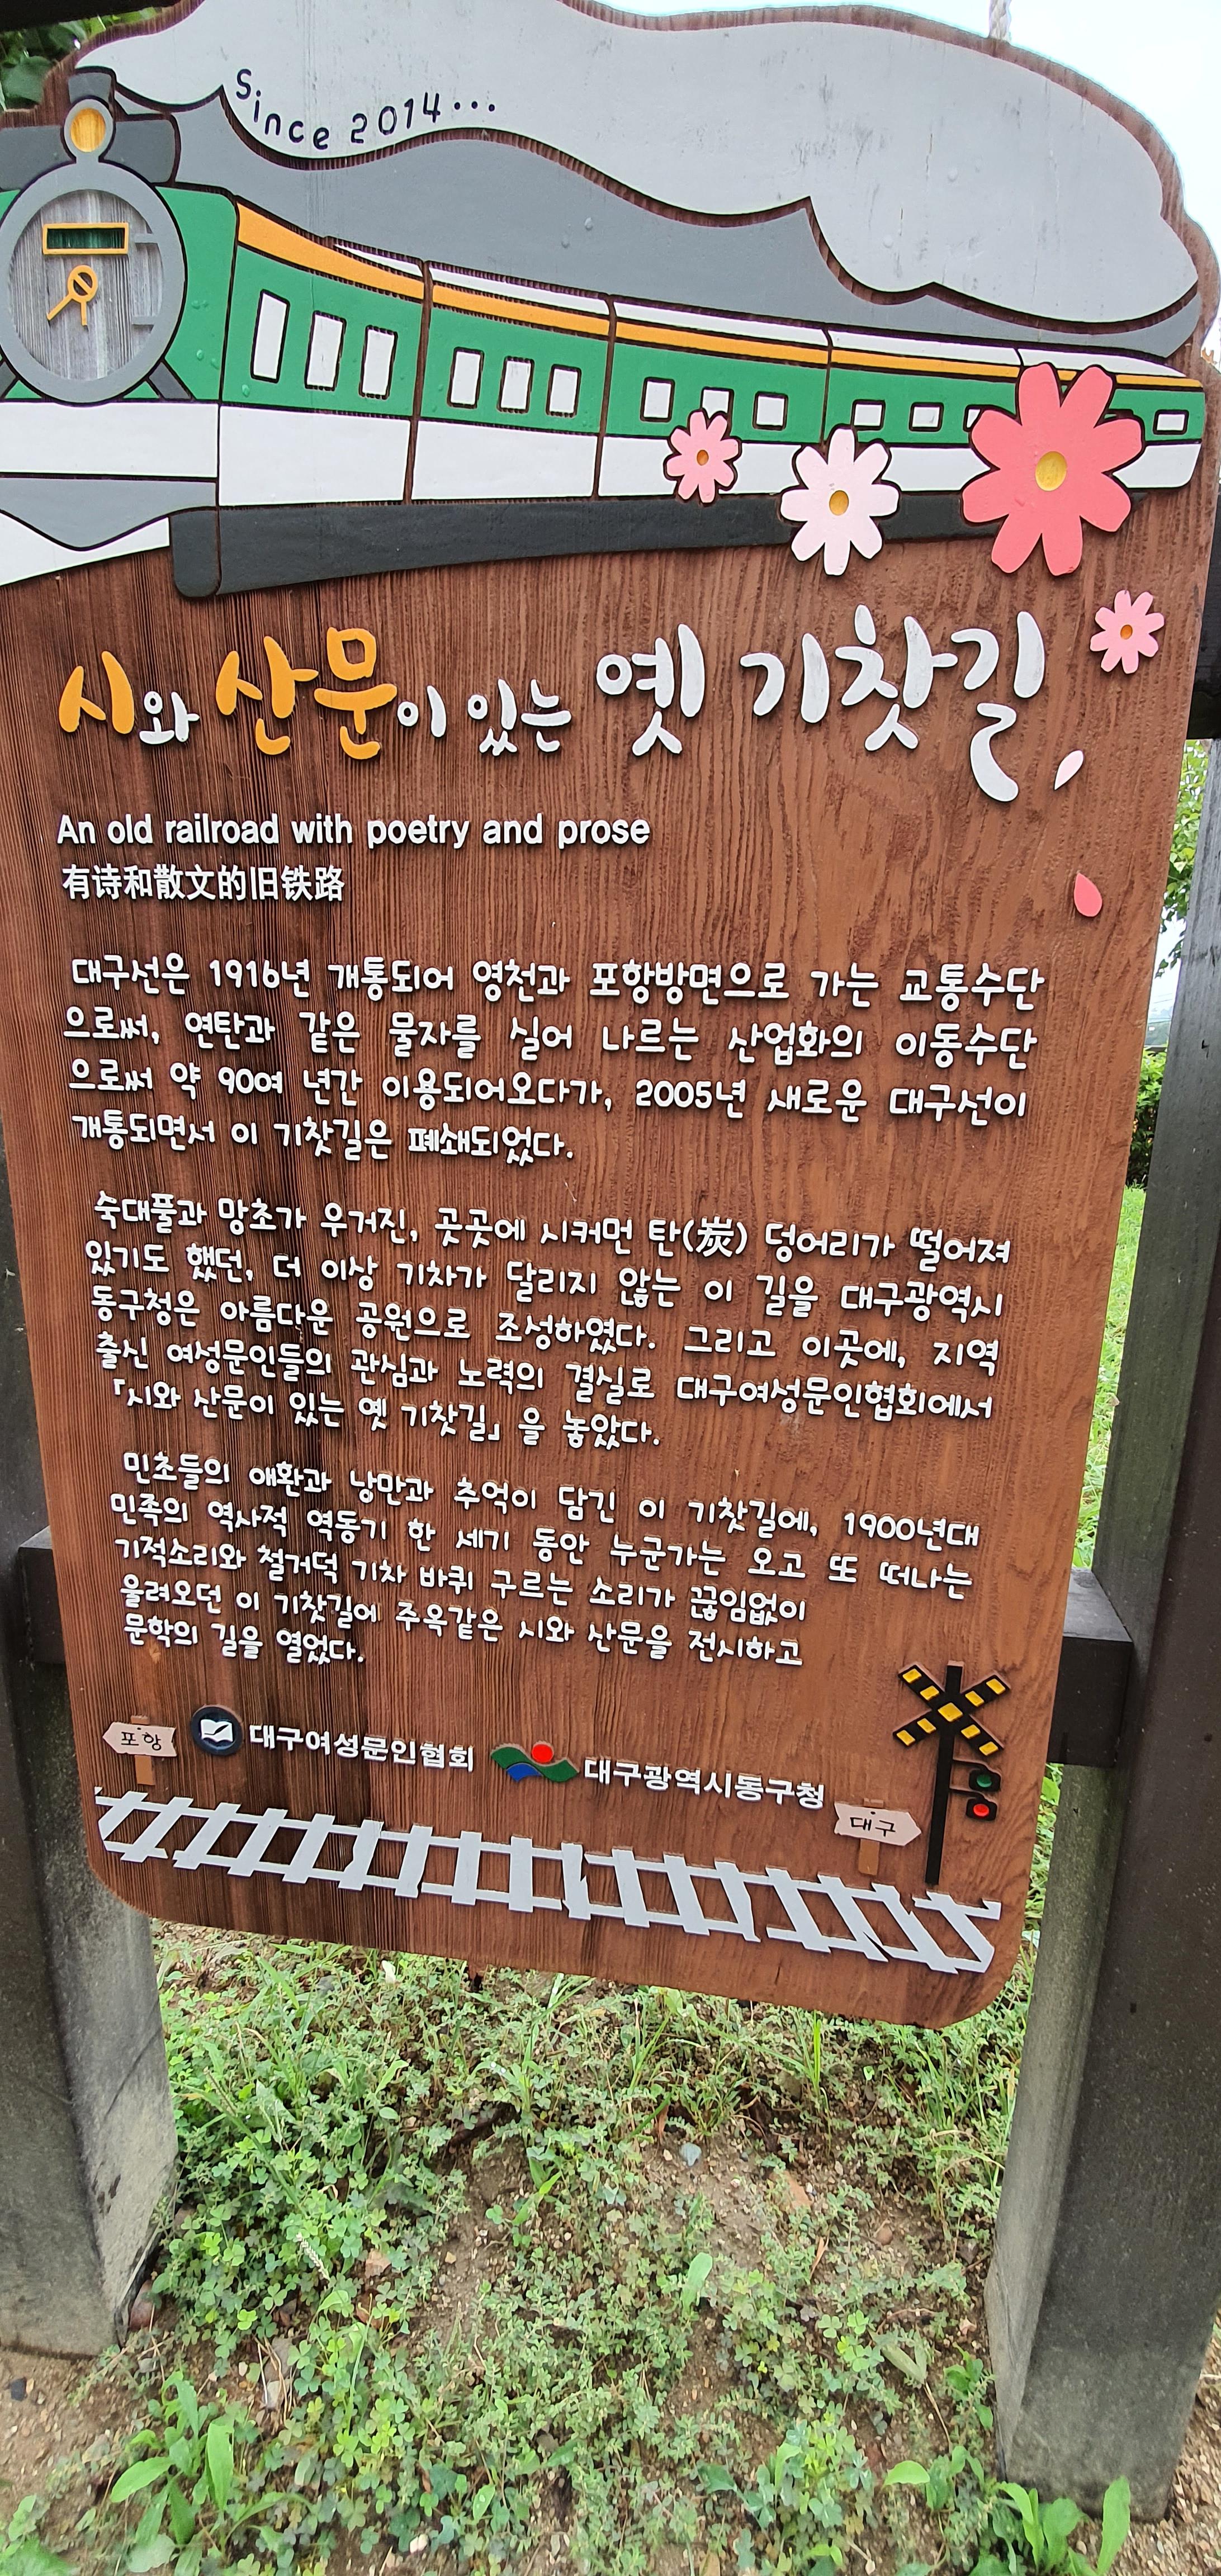 Since 2014...
시와 산문이 있는 옛 기찻길
An old railroad with poetry and prose
有诗和散文的旧铁路
대구선은 1916년 개통되어 영천과 포항방면으로 가는 교통수단
으로써, 연탄과 같은 물자를 실어 나르는 산업화의 이동수단
으로써 약 90여 년간 이용되어오다가, 2005년 새로운 대구선이
개통되면서 이 기찻길은 폐쇄되었다.
숙대풀과 망초가 우거진, 곳곳에 시커먼 탄(炭) 덩어리가 떨어져
있기도 했던, 더 이상 기차가 달리지 않는 이 길을 대구광역시
동구청은 아름다운 공원으로 조성하였다. 그리고 이곳에, 지역
출신 여성문인들의 관심과 노력의 결실로 대구여성문인협회에서
「시와 산문이 있는 옛 기찻길」을 놓았다.
민초들의 애환과 낭만과 추억이 담긴 이 기찻길에, 1900년대
민족의 역사적 역동기 한 세기 동안 누군가는 오고 또 떠나는
기적소리와 철거덕 기차 바퀴 구르는 소리가 끊임없이
울려오던 이 기찻길에 주옥같은 시와 산문을 전시하고
문학의 길을 열었다.
포항
대구여성문인협회
대구광역시동구청
대구